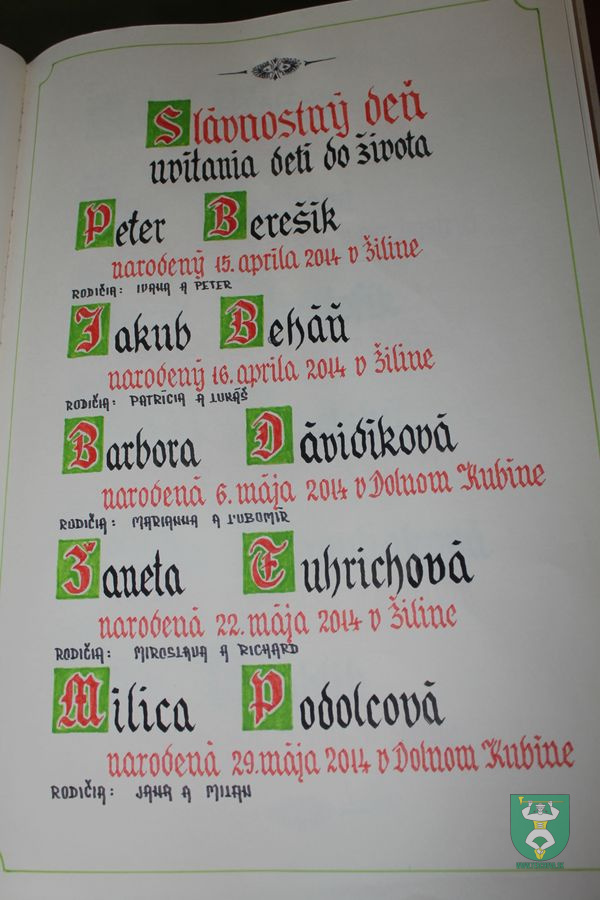 Slávnostný deň
uvítania detí do života
Peter Berešík
narodený 15. apríla 2014 v Žiline
RODIČIA: IVANA A PETER
Jakub Beháň
narodený 16. apríla 2014 v Žiline
RODIČIA: PATRÍCIA A LUKÁŠ
Barbora Dávidíková
narodená 6. mája 2014 v Dolnom Kubíne
RODIČIA: MARIANNA A ĽUBOMÍR
Žaneta Tuhrichová
narodená 22. mája 2014 v Žiline
RODIČIA: MIROSLAVA A RICHARD
Milica Podolcová
narodená 29. mája 2014 v Dolnom Kubíne
RODIČIA: JANA A MILAN